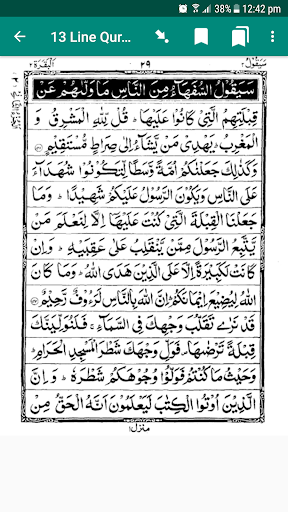 38% 12:42 pm
13 Line Qur...
سَيَقُوْلُ ٢ ٢٩ اَلْبَقَرَة ٢
سَيَقُوْلُ السُّفَهَآءُ مِنَ النَّاسِ مَا وَلّٰىهُمْ عَنْ
قِبْلَتِهِمُ الَّتِيْ كَانُوْا عَلَيْهَا ؕ قُلْ لِّلّٰهِ الْمَشْرِقُ وَ
الْمَغْرِبُ ؕ يَهْدِيْ مَنْ يَّشَآءُ اِلٰى صِرَاطٍ مُّسْتَقِيْمٍ
وَكَذٰلِكَ جَعَلْنٰكُمْ اُمَّةً وَّسَطًا لِّتَكُوْنُوْا شُهَدَآءَ
عَلَى النَّاسِ وَيَكُوْنَ الرَّسُوْلُ عَلَيْكُمْ شَهِيْدًا ؕ وَمَا
جَعَلْنَا الْقِبْلَةَ الَّتِيْ كُنْتَ عَلَيْهَا اِلَّا لِنَعْلَمَ مَنْ
يَّتَّبِعُ الرَّسُوْلَ مِمَّنْ يَّنْقَلِبُ عَلٰى عَقِبَيْهِ ؕ وَاِنْ
كَانَتْ لَكَبِيْرَةً اِلَّا عَلَى الَّذِيْنَ هَدَى اللّٰهُ ؕ وَمَا كَانَ
اللّٰهُ لِيُضِيْعَ اِيْمَانَكُمْ ؕ اِنَّ اللّٰهَ بِالنَّاسِ لَرَءُوْفٌ رَّحِيْمٌ
قَدْ نَرٰى تَقَلُّبَ وَجْهِكَ فِي السَّمَآءِ ۚ فَلَنُوَلِّيَنَّكَ
قِبْلَةً تَرْضٰىهَا ۪ فَوَلِّ وَجْهَكَ شَطْرَ الْمَسْجِدِ الْحَرَامِ ؕ
وَحَيْثُ مَا كُنْتُمْ فَوَلُّوْا وُجُوْهَكُمْ شَطْرَهٗ ؕ وَاِنَّ
الَّذِيْنَ اُوْتُوا الْكِتٰبَ لَيَعْلَمُوْنَ اَنَّهُ الْحَقُّ مِنْ
منزل ١